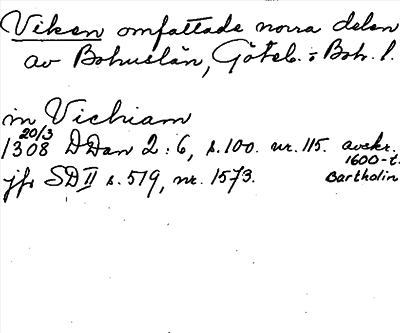 Viken omfattade norra delen
av Bohuslän, Göteb. o Boh. l.
in Vichiam
20/3
1308 DDan 2:6, s.100. nr. 115. avskr.
1600-t.
jfr SD II s. 519, nr. 1573. Bartholin